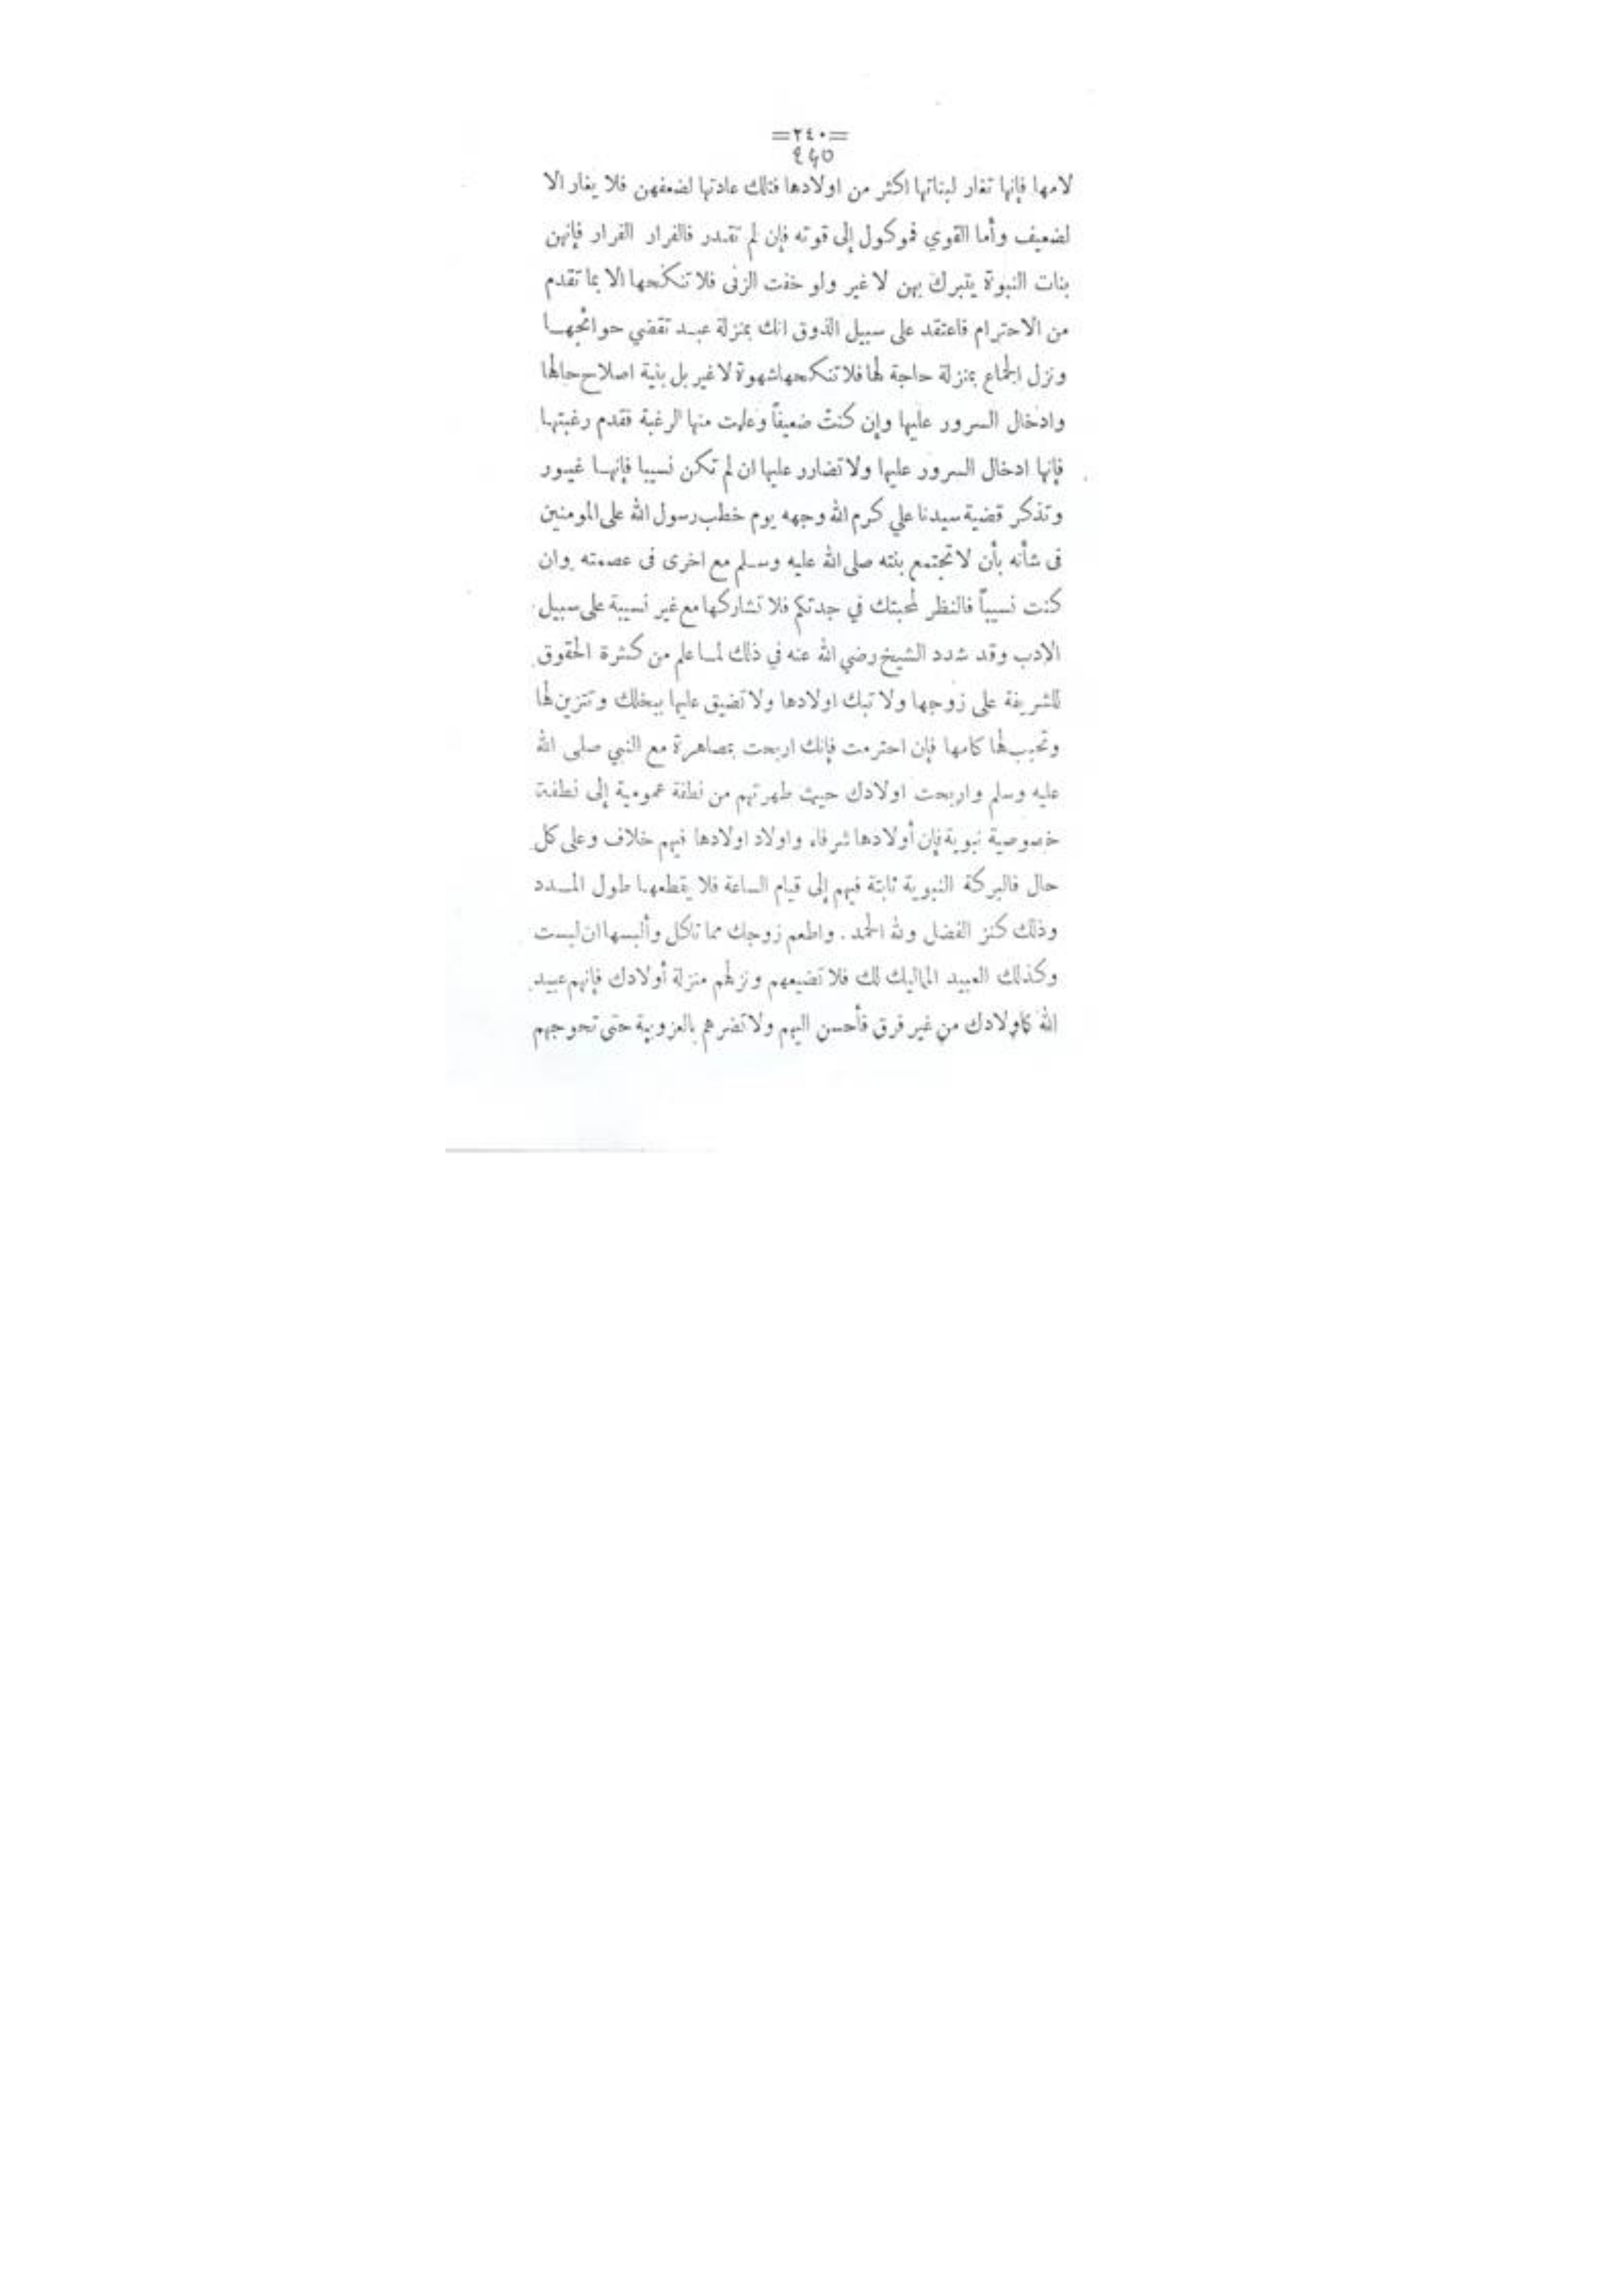 =٢٤٠=
لامها فإنها تغار لبناتها اكثر من اولادها فتلك عادتها لضعفهن فلا يغار الا
لضعيف وأما القوي فموكول إلى قوته فإن لم تقدر فالفرار الفرار فإنهن
بنات النبوة يتبرك بهن لا غير ولو خفت الزنى فلا تنكحها الا بما تقدم
من الاحترام فاعتقد على سبيل الذوق انك بمنزلة عبد تقضي حوائجها
ونزل الجماع بمنزلة حاجة لها فلا تنكحها شهوة لا غير بل بنية اصلاح حالها
وادخال السرور عليها وإن كنت ضعيفاً وعلمت منها الرغبة فقدم رغبتها
فإنها ادخال السرور عليها ولا تضارر عليها ان لم تكن نسيبا فإنها غيور
وتذكر قضية سيدنا علي كرم الله وجهه يوم خطب رسول الله على المومنين
فى شأنه بأن لا تجتمع بنته صلى الله عليه وسلم مع اخرى فى عصمته وان
كنت نسيباً فالنظر لمحبتك في جدتكم فلا تشاركها مع غير نسيبة على سبيل
الادب وقد شدد الشيخ رضي الله عنه في ذلك لما علم من كثرة الحقوق
للشريفة على زوجها ولا تبك اولادها ولا تضيق عليها ببخلك وتتزين لها
وتحبب لها كامها فإن احترمت فإنك اربحت بمصاهرة مع النبي صلى الله
عليه وسلم واربحت اولادك حيث طهرتهم من نطفة عمومية إلى نطفة
خصوصية نبوية فإن أولادها شرفاء واولاد اولادها فيهم خلاف وعلى كل
حال فالبركة النبوية ثابتة فيهم إلى قيام الساعة فلا يقطعها طول المدد
وذلك كنز الفضل ولله الحمد. واطعم زوجك مما تاكل وألبسها ان لبست
وكذلك العبيد المماليك لك فلا تضيعهم ونزلهم منزلة أولادك فإنهم عبيد
الله كاولادك من غير فرق فأحسن اليهم ولا تضرهم بالعزوبية حتى تحوجهم